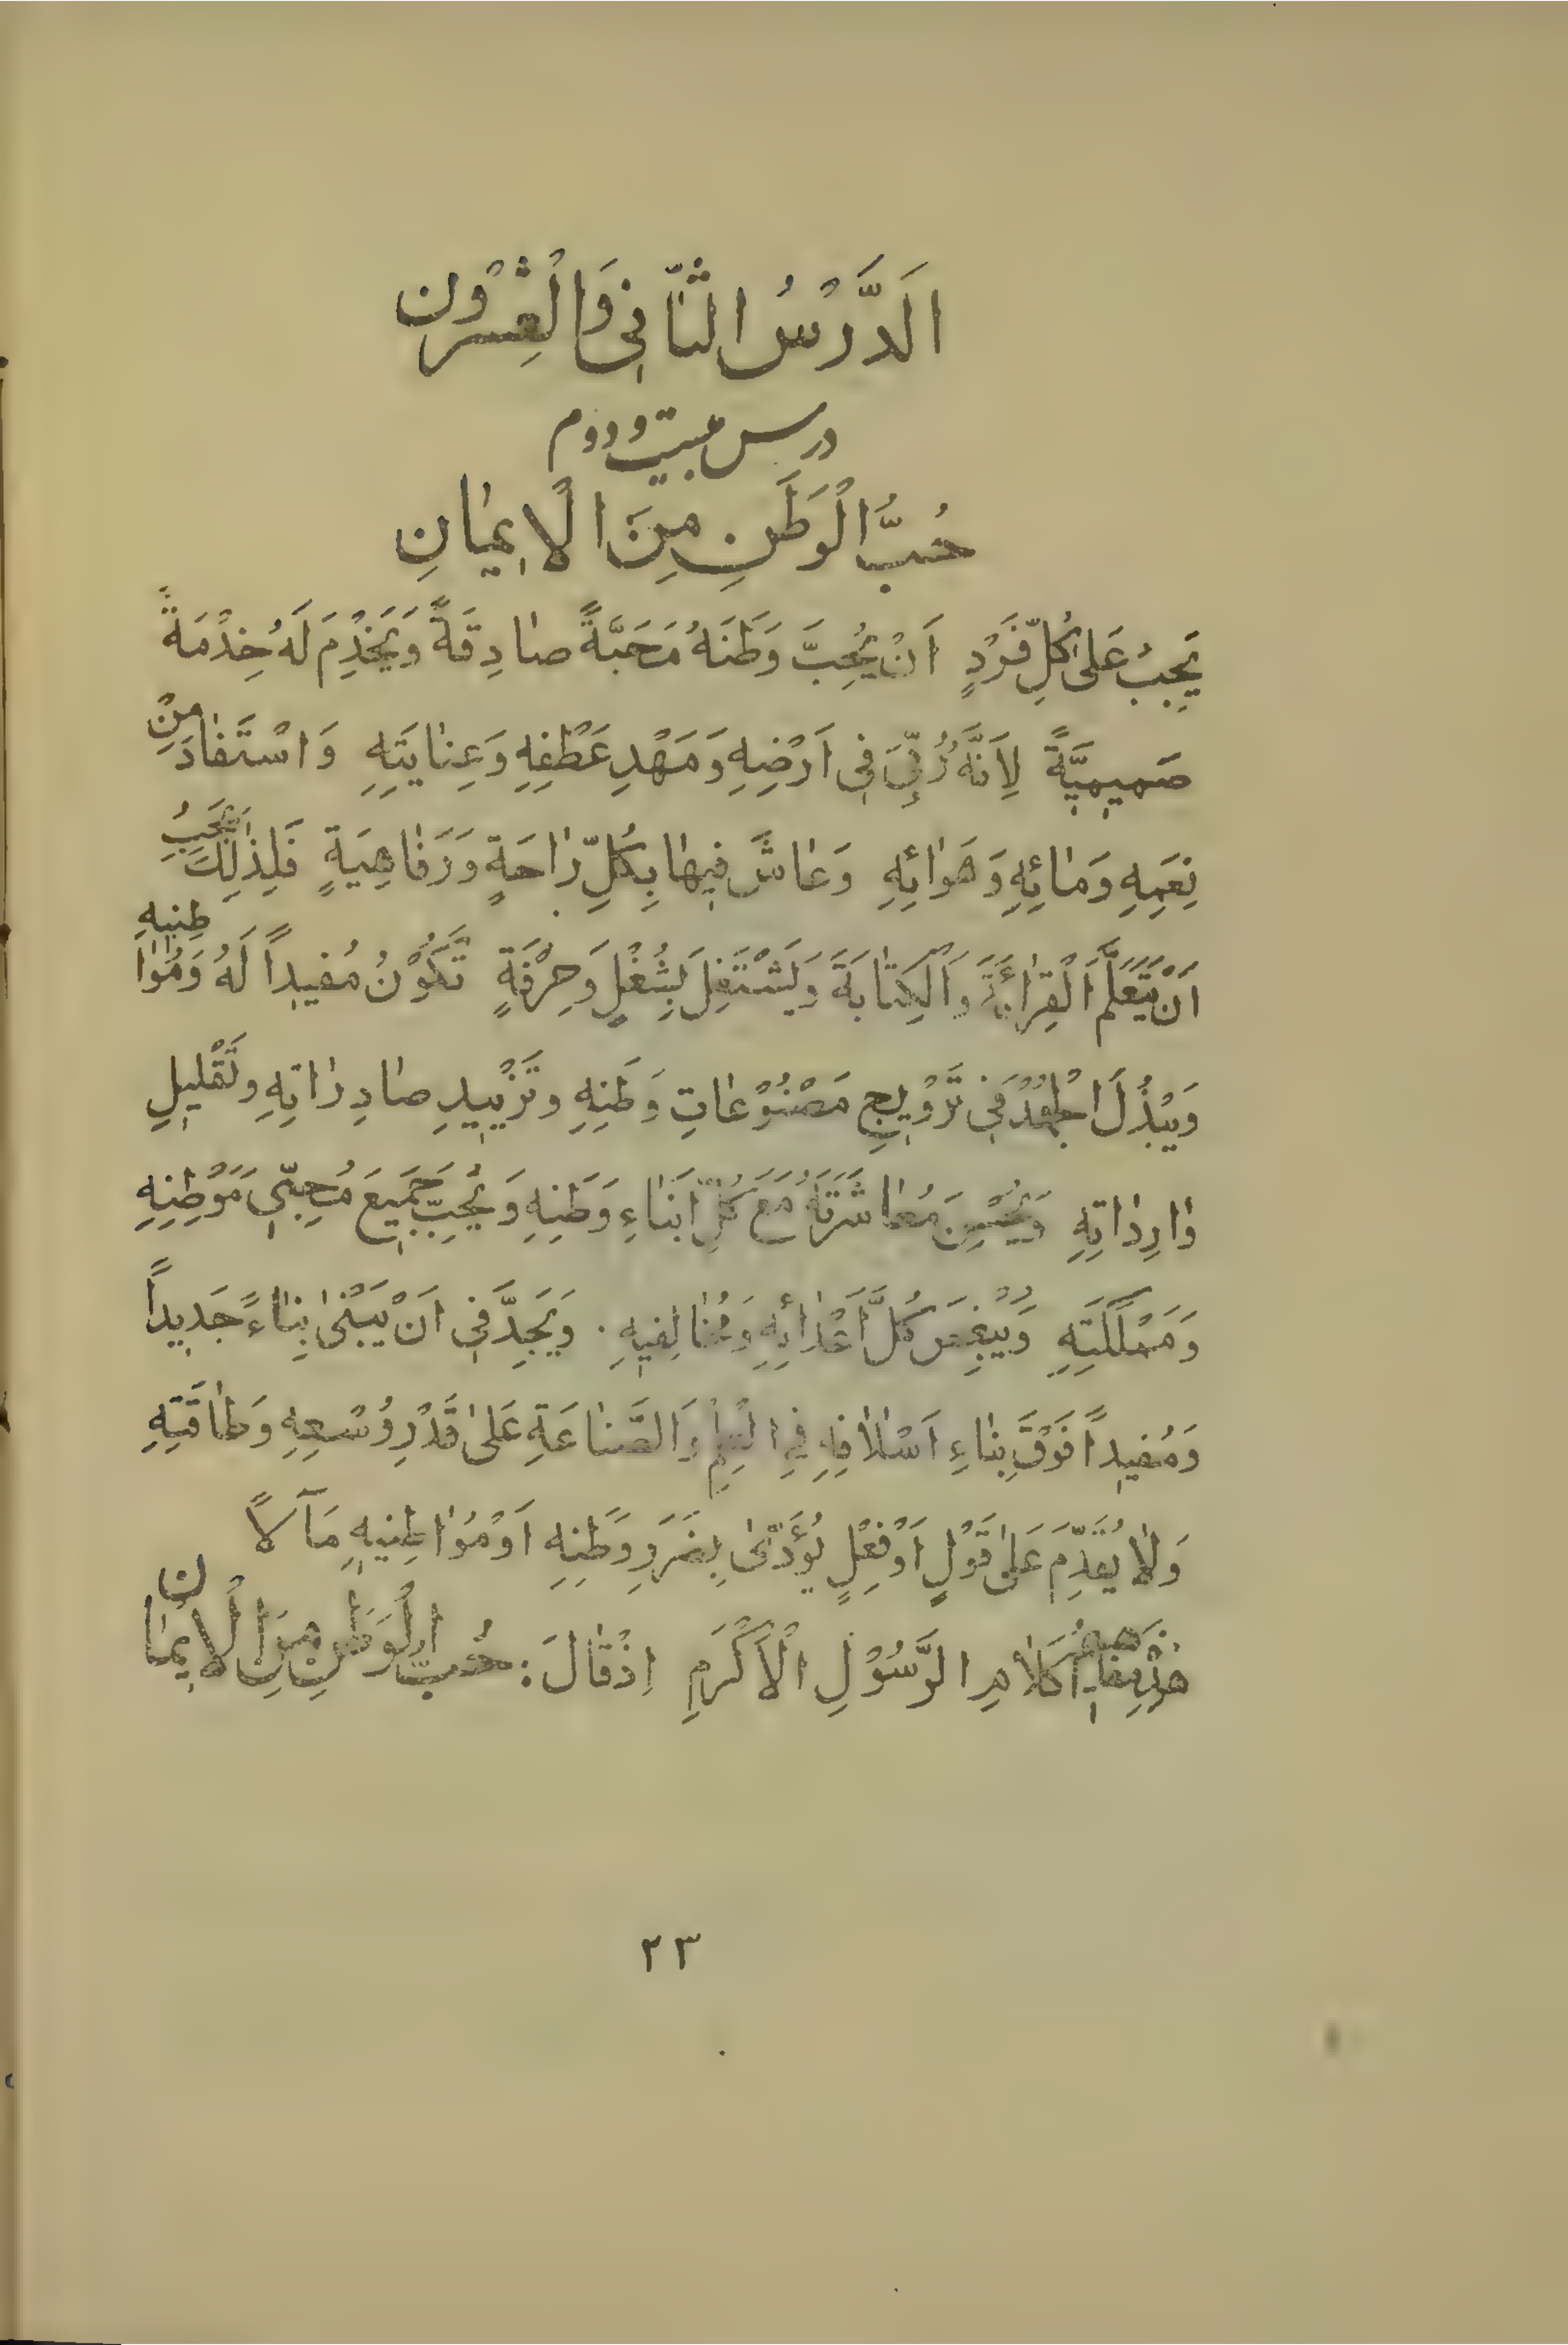 اَلدَّرْسُ الثّانی وَالْعِشْرُون
درس بیست و دوم
حُبُّ الْوَطَنِ مِنَ الْاِیمانِ
یَجِبُ عَلیٰ کُلِّ فَرْدٍ اَنْ یُحِبَّ وَطَنَهُ مَحَبَّةً صادِقَةً وَیَخْدِمَ لَهُ خِدْمَةً
صَمیمِیَّةً لِاَنَّهُ رُبِّیَ فی اَرْضِهِ وَمَهْدِ عَطْفِهِ وَعِنایَتِهِ وَاسْتَفادَ مِنْ
نِعَمِهِ وَمائِهِ وَهَوائِهِ وَعاشَ فیها بِکُلِّ راحَةٍ وَرَفاهِیَةٍ فَلِذٰلِکَ یَجِبُ
اَنْ یَتَعَلَّمَ الْقِرائَةَ وَالْکِتابَةَ وَیَشْتَغِلَ بِشُغْلٍ وَحِرْفَةٍ تَکُوْنُ مُفیداً لَهُ وَمُواطِنیهِ
وَیَبْذُلَ الْجُهْدَ فی تَرْویجِ مَصْنُوْعاتِ وَطَنِهِ وتَزْییدِ صادِراتِهِ وتَقْلیلِ
وارِداتِهِ وَیُحْسِنَ مُعاشَرَتَهُ مَعَ کُلِّ اَبْناءِ وَطَنِهِ وَیُحِبَّ جَمیعَ مُحِبّی مَوْطِنِهِ
وَمَمْلَکَتِهِ وَیُبْغِضَ کُلَّ اَعْدائِهِ وَمُخالِفیهِ. وَیَجِدَّ فی اَنْ یَبْنیٰ بِناءً جَدیداً
وَمُفیداً فَوْقَ بِناءِ اَسْلافِهِ فِی الْعِلْمِ وَالصَّناعَةِ عَلیٰ قَدْرِ وُسْعِهِ وَطاقَتِهِ
وَلا یُقَدِّمَ عَلیٰ قَوْلٍ اَوْ فِعْلٍ یُؤَدّیٰ بِضَرَرِ وَطَنِهِ اَوْ مُواطِنیهِ مَآلاً
کَلامِ الرَّسُوْلِ الْاَکْرَمِ اِذْ قالَ: حُبُّ الْوَطَنِ مِنَ الْاِیمان
۲۳